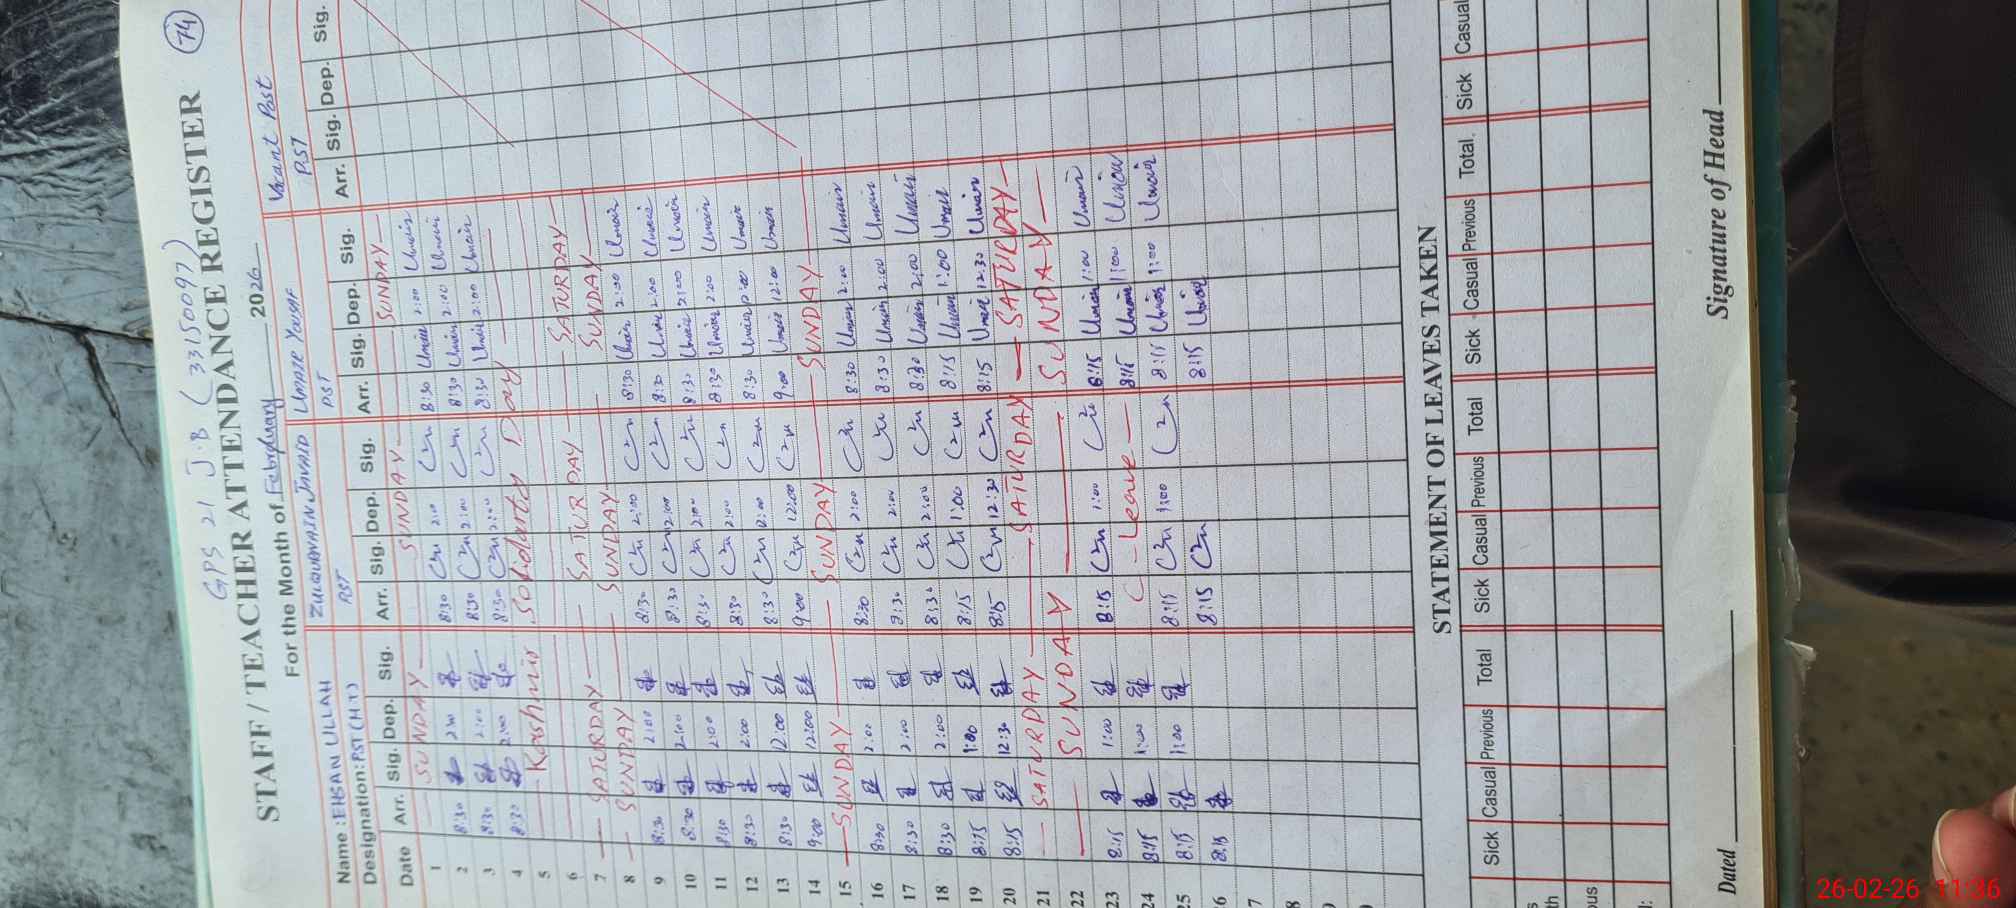 74
GPS 21 J.B (33150097)
STAFF / TEACHER ATTENDANCE REGISTER
For the Month of February 2026
Name : EHSAN ULLAH ZULQURNAIN JAVAID Umair Yousaf Vacant Post
Designation: PST (H.T) PST PST PST
Date Arr. Sig. Dep. Sig. Arr. Sig. Dep. Sig. Arr. Sig. Dep. Sig. Arr. Sig. Dep. Sig.
1 SUNDAY SUNDAY SUNDAY
2 8:30 2:00 8:30 2:00 8:30 Umair 2:00 Umair
3 8:30 2:00 8:30 2:00 8:30 Umair 2:00 Umair
4 8:30 2:00 8:30 2:00 8:30 Umair 2:00 Umair
5 Kashmir Solidarty Day
6
7 SATURDAY SATURDAY SATURDAY
8 SUNDAY SUNDAY SUNDAY
9 8:30 2:00 8:30 2:00 8:30 Umair 2:00 Umair
10 8:30 2:00 8:30 2:00 8:30 Umair 2:00 Umair
11 8:30 2:00 8:30 2:00 8:30 Umair 2:00 Umair
12 8:30 2:00 8:30 2:00 8:30 Umair 2:00 Umair
13 8:30 12:00 8:30 8:30 Umair Umair
14 9:00 12:00 9:00 12:00 9:00 Umair 12:00 Umair
15 SUNDAY SUNDAY SUNDAY
16 8:30 2:00 8:30 2:00 8:30 Umair 2:00 Umair
17 8:30 2:00 8:30 2:00 8:30 Umair 2:00 Umair
18 8:30 2:00 8:30 2:00 8:30 Umair 2:00 Umair
19 8:15 1:00 8:15 1:00 8:15 Umair 1:00 Umair
20 8:15 12:30 8:15 12:30 8:15 Umair 12:30 Umair
21 SATURDAY SATURDAY SATURDAY
22 SUNDAY SUNDAY
23 8:15 1:00 8:15 1:00 8:15 Umair 1:00 Umair
24 8:15 1:00 C - Leave 8:15 Umair 1:00 Umair
25 8:15 1:00 8:15 1:00 8:15 Umair 1:00 Umair
6 8:15 8:15 8:15 Umair
7
8
STATEMENT OF LEAVES TAKEN
Sick Casual Previous Total Sick Casual Previous Total Sick Casual Previous Total. Sick Casual
Dated Signature of Head
26-02-26 11:36